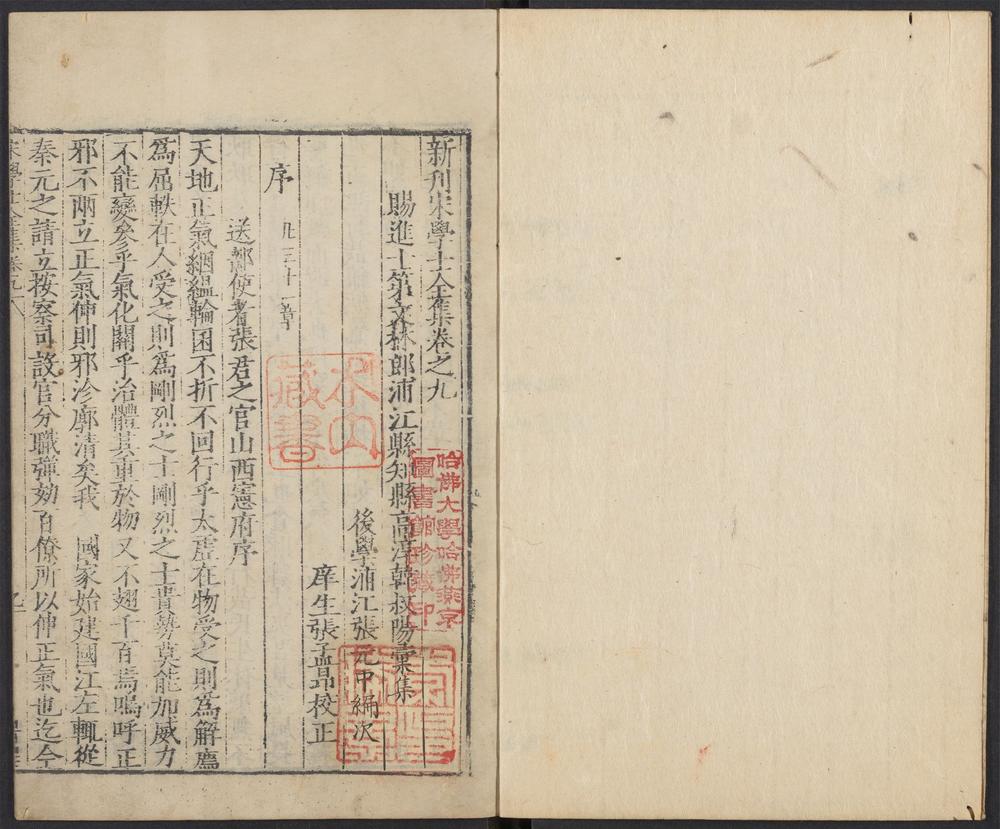 新刊宋學士全集卷之九
賜進士第文林郎浦江縣知縣高淳韓叔陽彙集
後學浦江張元中編次
庠生張孟昂校正
序 凡三十一章
送部使者張君之官山西憲府序
天地正氣絪縕輪囷不折不回行乎太虛在物受之則爲解廌
爲屈軼在人受之則爲剛烈之士剛烈之士貴勢莫能加威力
不能變參乎氣化關乎治體其重於物又不翅千百焉嗚呼正
邪不兩立正氣伸則邪沴廓清矣我 國家始建國江左輒從
秦元之請立按察司設官分職彈劾百僚所以伸正氣也迄今
宋學士全集卷九
哈佛大學哈佛燕京
圖書館珍藏印
木山
藏書